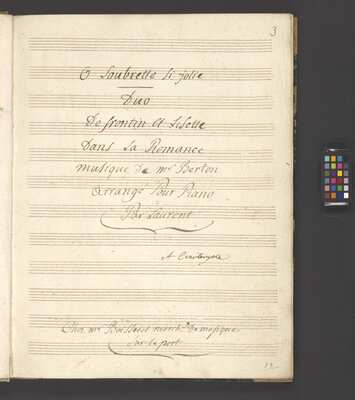 3
O Soubrette Si jolie
Duo
De frontin Et Lisette
Dans La Romance
musique de mr Berton
Arrangé Pour Piano
Par Laurent
A
Chez mr march. De musique
Sur le port